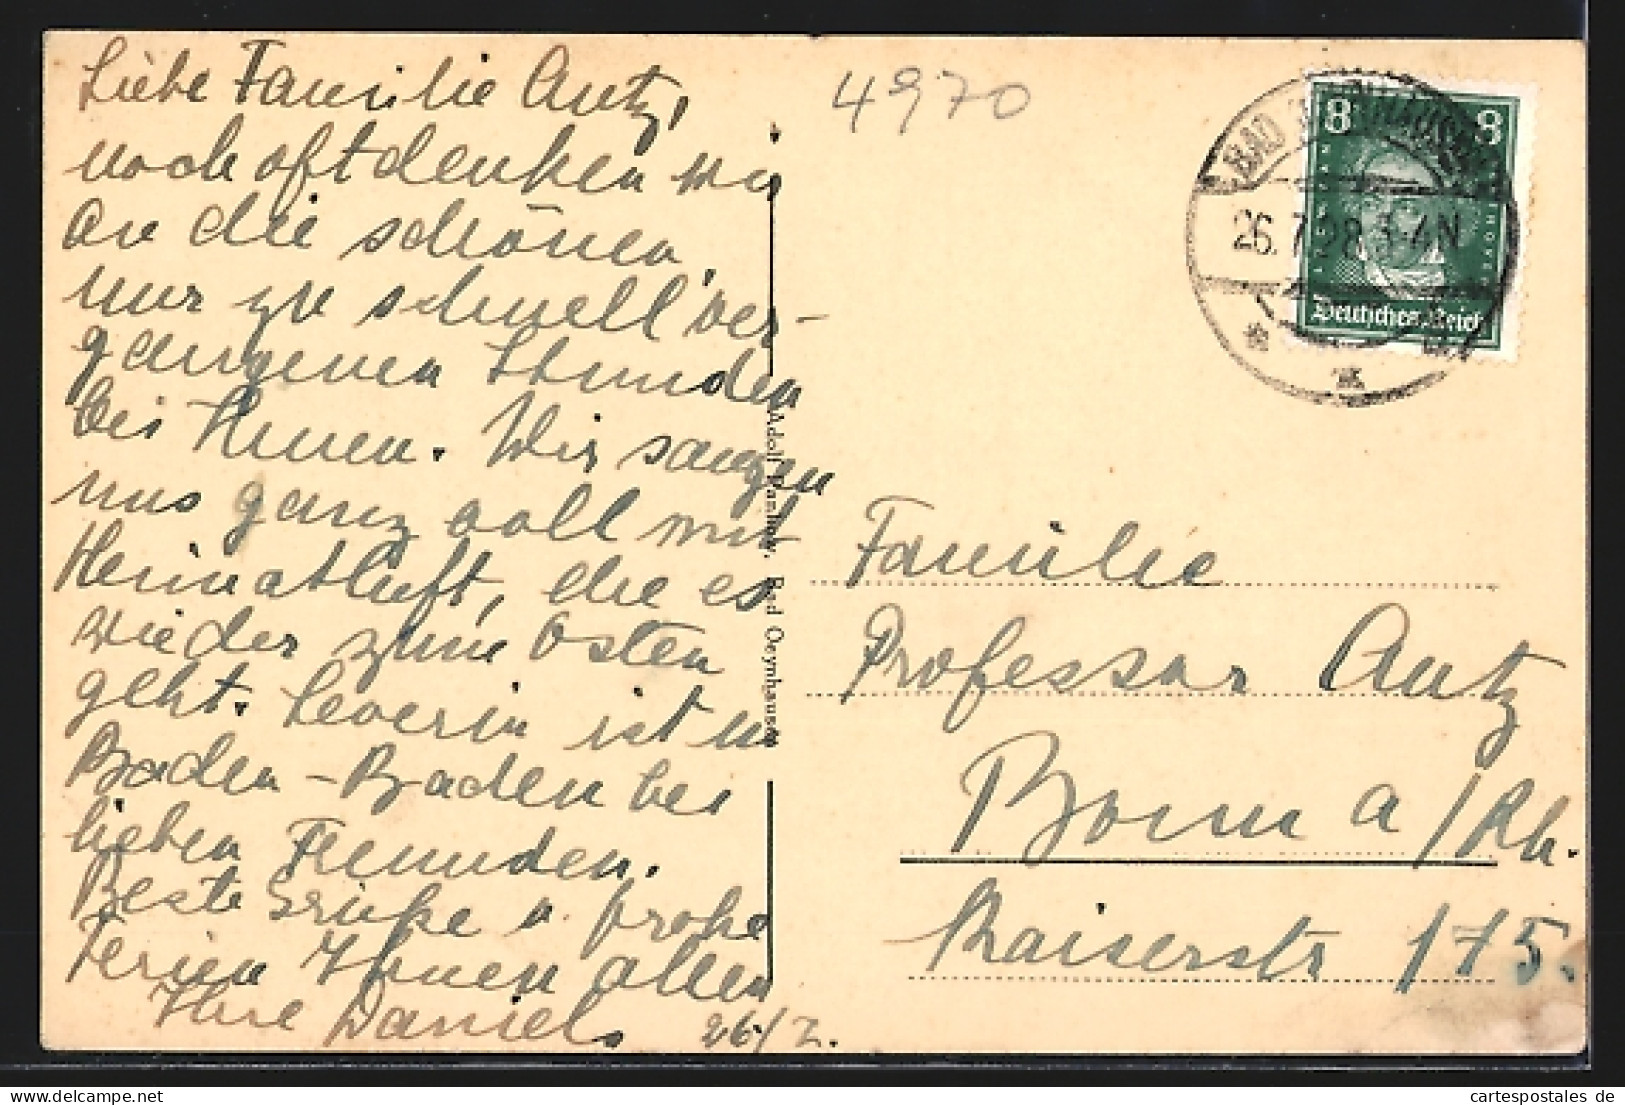 Liebe Familie Antz,
noch oft denken wir
an die schönen,
nur zu schnell ver-
gangenen Stunden
bei Ihnen. Wir saugen
uns ganz voll mit
Heimatluft, die es
wieder zum Osten
geht. Severin ist in
Baden-Baden bei
lieben Freunden.
Beste Grüße u. frohe
Ferien Ihnen allen
Ihre Daniels 26/7.
4970
BAD OEYNHAUSEN
26.7.28.3-4N
8 8
Deutsches Reich
Adolf Bad Oeynhausen
Familie
Professor Antz
Bonn a/Rh.
Kaiserstr 175.
www.cartespostales.de